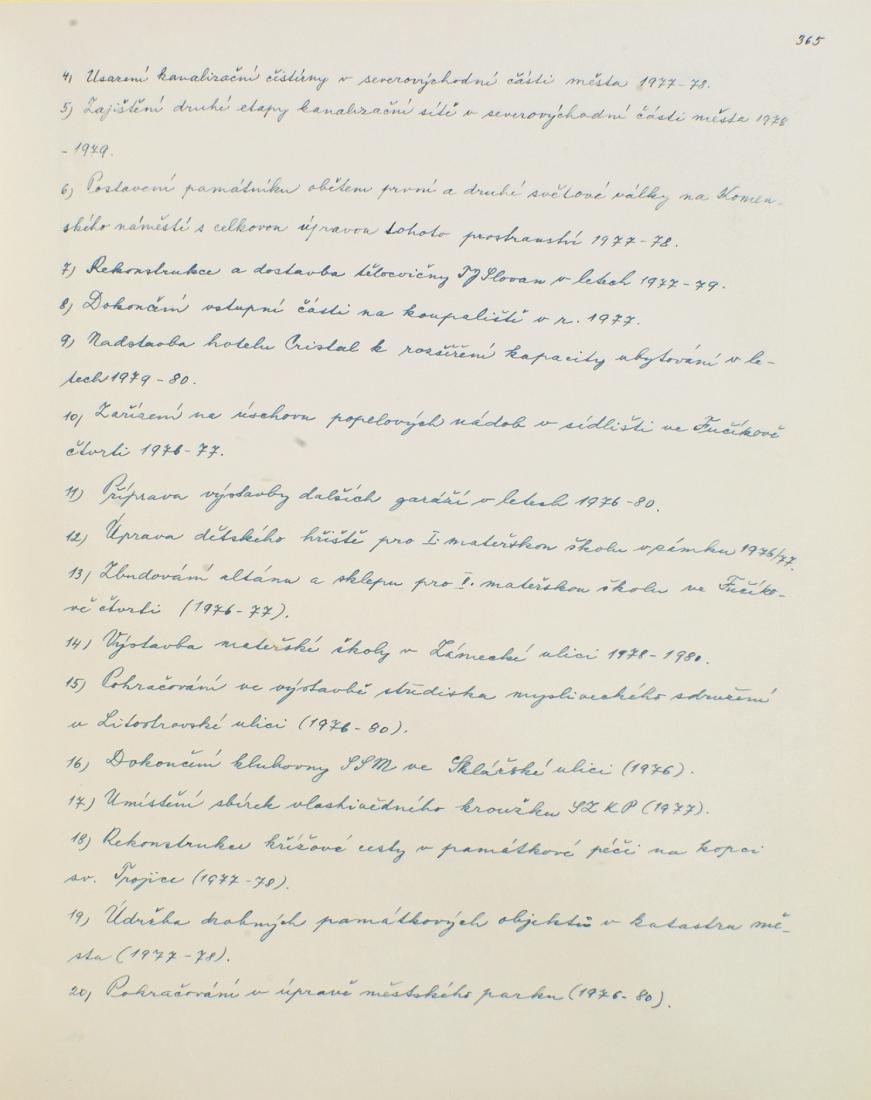 365
4) Usazení kanalizační čistírny v severovýchodní části města 1977-78.
5) Zajištění druhé etapy kanalizační sítě v severovýchodní části města 1978
- 1979.
6) Postavení památníku obětem první a druhé světové války na Komen-
ského náměstí s celkovou úpravou tohoto prostranství 1977-78.
7) Rekonstrukce a dostavba tělocvičny TJ Slovan v letech 1977-79.
8) Dokončení vstupní části na koupališti v r. 1977.
9) Nadstavba hotelu Cristal k rozšíření kapacity ubytování v le-
tech 1979-80.
10) Zařízení na úschovu popelových nádob v sídlišti ve Fučíkově
čtvrti 1976-77.
11) Příprava výstavby dalších garáží v letech 1976-80.
12) Úprava dětského hřiště pro I. mateřskou školu v zámku 1976/77.
13) Zbudování altánu a sklepu pro II. mateřskou školu ve Fučíko-
vě čtvrti (1976-77).
14) Výstavba mateřské školy v Zámecké ulici 1978-1980.
15) Pokračování ve výstavbě střediska mysliveckého sdružení
v Litostrovské ulici (1976-80).
16) Dokončení klubovny SSM ve Sklářské ulici (1976).
17) Umístění sbírek vlastivědného kroužku SZKP (1977).
18) Rekonstrukce křížové cesty v památkové péči na kopci
sv. Trojice (1977-78).
19) Údržba drobných památkových objektů v katastru mě-
sta (1977-78).
20) Pokračování v úpravě městského parku (1976-80).